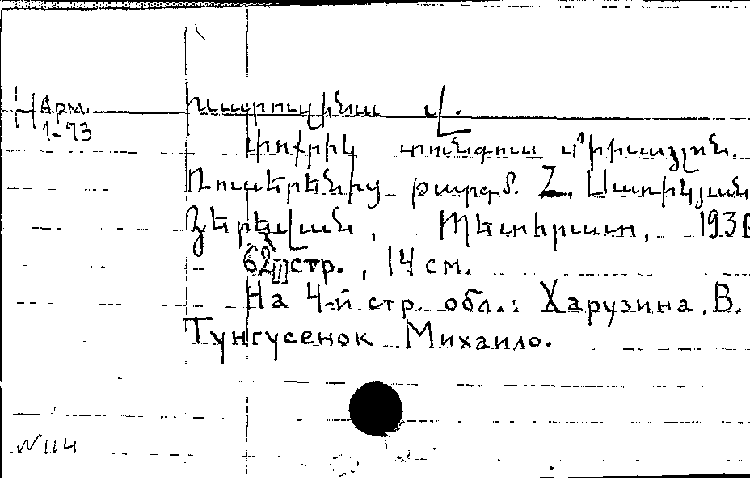 Арм.
1-73
Խարուզինա Վ.
Փոքրիկ տունգուս Միխայլոն.
Ռուսերենից թարգմ. Հ.
Յերեվան, Պետհրատ, 193
62 стр., 14 см.
На 4-й стр. обл.: Харузина, В.
Тунгусенок Михаило.
N 114